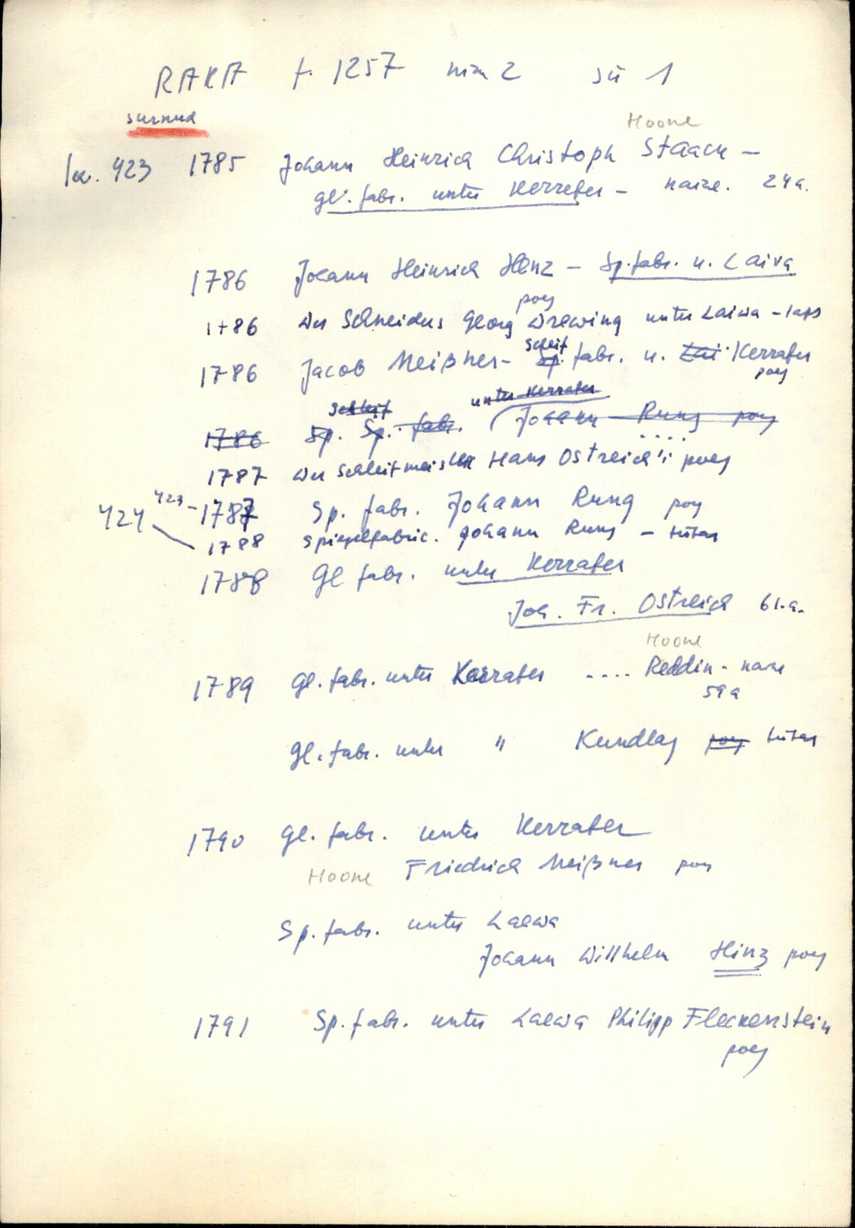 RAKA f. 1257 nim 2 sü 1
surnud
Hoone
lk. 423 1785 Johann Heinrich Christoph Staack –
gl. fabr. unter Kerrafer – naine. 24a.
1786 Johann Heinrich Hinz – Sp. fabr. u. Laiva
poeg
1786 des Schneiders Georg Drewing unter Laiwa – laps
Schleif
1786 Jacob Meißner – Sp. fabr. u. Lai Kerrafer
poeg
Schleif unter Kerrafer
1786 Sp. Sp. fabr. Johann Rung poeg
1787 des Schleifmeister Hans Ostreich'i poeg
424 423 – 1787 Sp. fabr. Johann Rung poeg
1788 Spiegelfabric. Johann Rung – tütar
1788 Gl fabr. unter Kerrafer
Joh. Fr. Ostreich 61.a.
Hoone
1789 Gl. fabr. unter Kerrafer .... Reddin – naine
59a
Gl. fabr. unter " Kundlag poeg tütar
1790 Gl. fabr. unter Kerrafer
Hoone Friedrich Meißner poeg
Sp. fabr. unter Laewa
Johann Willhelm Hinz poeg
1791 Sp. fabr. unter Laewa Philipp Fleckenstein
poeg